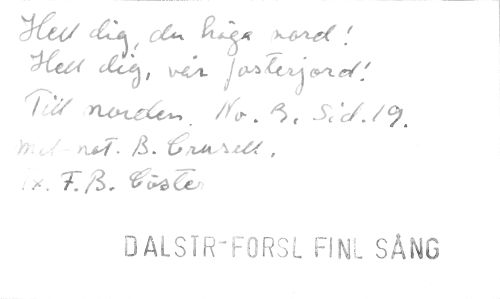 Hell dig, du höga nord!
Hell dig, vår fosterjord!
Till norden. No. 3. Sid. 19.
med not. B. Crusell.
F. B. Cöster
DALSTR-FORSL FINL SÅNG